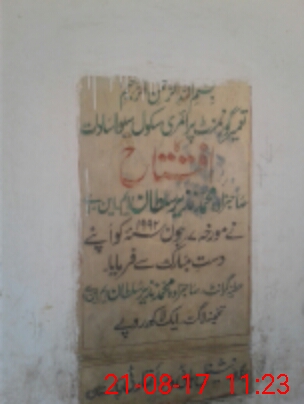 بسم اللہ الرحمن الرحیم
تعمیر گورنمنٹ پرائمری سکول سادات
افتتاح
صاحبزادہ محمد نذیر سلطان
نے مورخہ ۷ جون ۱۹۹۲ کو اپنے
دست مبارک سے فرمایا۔
گرانٹ، صاحبزادہ محمد نذیر سلطان
تخمینہ لاگت ایک لاکھ روپے
21-08-17 11:23